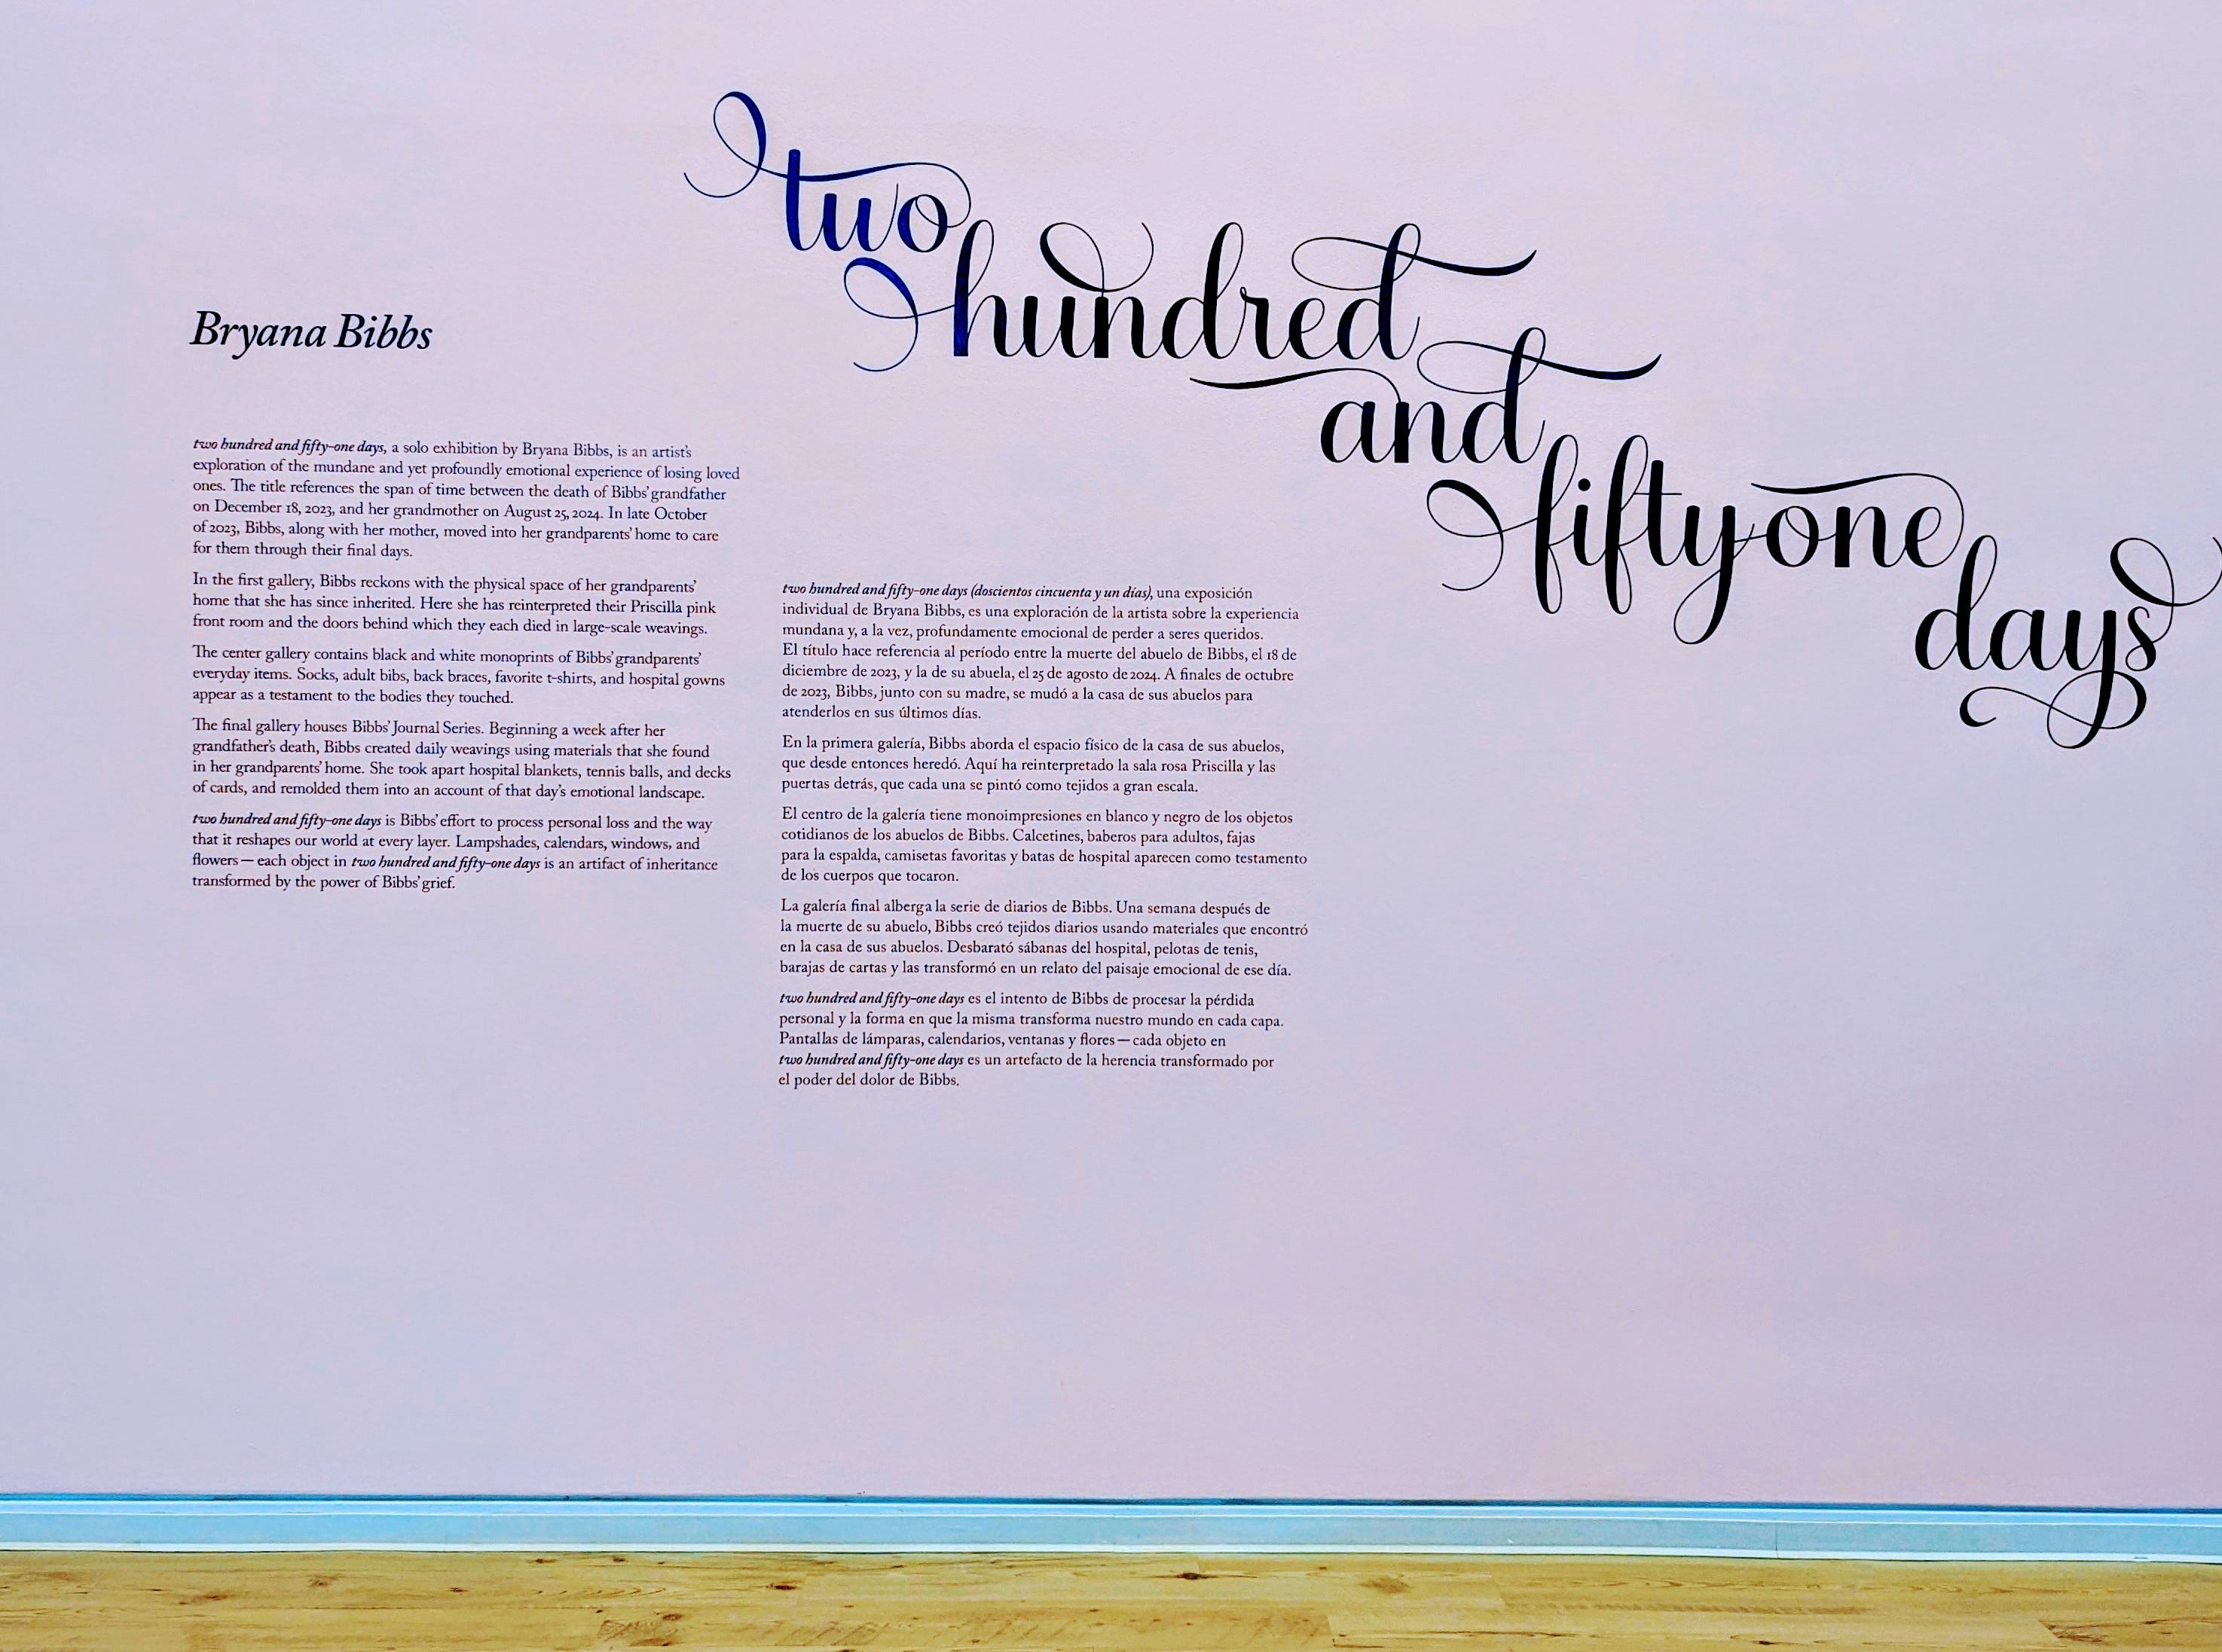 two
hundred
and
fifty-one
days
Bryana Bibbs
two hundred and fifty-one days, a solo exhibition by Bryana Bibbs, is an artist's
exploration of the mundane and yet profoundly emotional experience of losing loved
ones. The title references the span of time between the death of Bibbs' grandfather
on December 18, 2023, and her grandmother on August 25, 2024. In late October
of 2023, Bibbs, along with her mother, moved into her grandparents' home to care
for them through their final days.
In the first gallery, Bibbs reckons with the physical space of her grandparents'
home that she has since inherited. Here she has reinterpreted their Priscilla pink
front room and the doors behind which they each died in large-scale weavings.
The center gallery contains black and white monoprints of Bibbs' grandparents'
everyday items. Socks, adult bibs, back braces, favorite t-shirts, and hospital gowns
appear as a testament to the bodies they touched.
The final gallery houses Bibbs' Journal Series. Beginning a week after her
grandfather's death, Bibbs created daily weavings using materials that she found
in her grandparents' home. She took apart hospital blankets, tennis balls, and decks
of cards, and remolded them into an account of that day's emotional landscape.
two hundred and fifty-one days is Bibbs' effort to process personal loss and the way
that it reshapes our world at every layer. Lampshades, calendars, windows, and
flowers — each object in two hundred and fifty-one days is an artifact of inheritance
transformed by the power of Bibbs' grief.
two hundred and fifty-one days (doscientos cincuenta y un días), una exposición
individual de Bryana Bibbs, es una exploración de la artista sobre la experiencia
mundana y, a la vez, profundamente emocional de perder a seres queridos.
El título hace referencia al período entre la muerte del abuelo de Bibbs, el 18 de
diciembre de 2023, y la de su abuela, el 25 de agosto de 2024. A finales de octubre
de 2023, Bibbs, junto con su madre, se mudó a la casa de sus abuelos para
atenderlos en sus últimos días.
En la primera galería, Bibbs aborda el espacio físico de la casa de sus abuelos,
que desde entonces heredó. Aquí ha reinterpretado la sala rosa Priscilla y las
puertas detrás, que cada una se pintó como tejidos a gran escala.
El centro de la galería tiene monoimpresiones en blanco y negro de los objetos
cotidianos de los abuelos de Bibbs. Calcetines, baberos para adultos, fajas
para la espalda, camisetas favoritas y batas de hospital aparecen como testamento
de los cuerpos que tocaron.
La galería final alberga la serie de diarios de Bibbs. Una semana después de
la muerte de su abuelo, Bibbs creó tejidos diarios usando materiales que encontró
en la casa de sus abuelos. Desbarató sábanas del hospital, pelotas de tenis,
barajas de cartas y las transformó en un relato del paisaje emocional de ese día.
two hundred and fifty-one days es el intento de Bibbs de procesar la pérdida
personal y la forma en que la misma transforma nuestro mundo en cada capa.
Pantallas de lámparas, calendarios, ventanas y flores — cada objeto en
two hundred and fifty-one days es un artefacto de la herencia transformado por
el poder del dolor de Bibbs.